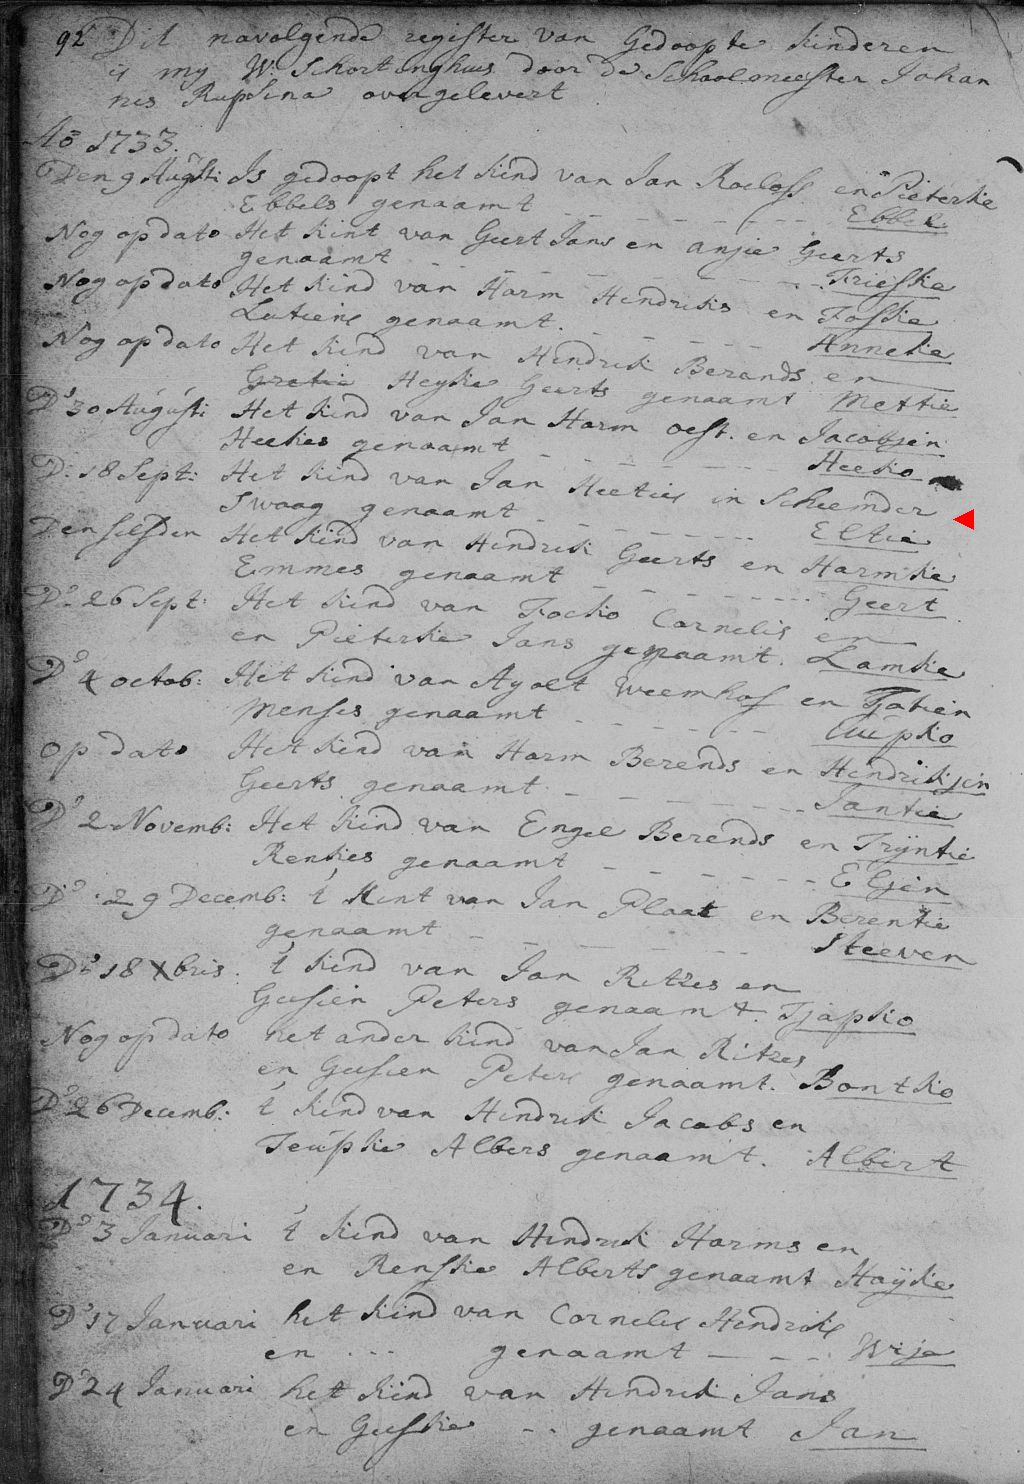 92 Dit navolgende register van Gedoopte kinderen
is my W. Schortinghuis door de Schoolmeester Johan
nes Rupsina overgelevert
Ao 1733.
Den 9 Augusti Is gedoopt het kind van Jan Roelofs en Pieterke
Ebbels genaamt - - - - - - - Ebbele
Nog op dato Het kint van Geert Jans en anjie Geerts
genaamt - - - - - - - Frieske
Nog op dato Het kind van Harm Hendriks en Foske
Lutiens genaamt. - - - - - Anneke
Nog op dato Het kind van Hendrik Berands en
Heyke Geerts genaamt Mettie
Do 30 Augusti Het kind van Jan Harm oest. en Jacobjen
Heekes genaamt - - - - - - Heeko
D: 18 Sept: Het kind van Jan Meeties in Scheemder
Swaag genaamt - - - - - - Eltie
Denselfden Het kind van Hendrik Geerts en Harmke
Emmes genaamt - - - - - - Geert
Do 26 Sept: Het kind van Focko Cornelis en
en Pieterke Jans genaamt. Lamke
Do 4 octob: Het kind van Ayolt Weemhof en Tjatien
Menses genaamt - - - - - - Aupko
op dato Het kind van Harm Berends en Hendrikjen
Geerts genaamt - - - - - - Jantie
Do 2 Novemb: Het kind van Engel Berends en Trÿntie
Renkes genaamt - - - - - - Eljen
Do 29 Decemb: 't kint van Jan Plaat en Berentie
genaamt - - - - - - Steeven
Do 18 Xbris. 't kind van Jan Ritzes en
Geesien Peters genaamt. Tjapko
Nog op dato het ander kind van Jan Ritzes
en Geesien Peters genaamt. Bontko
Do 26 Decemb: 't kind van Hindrik Jacobs en
Teupke Albers genaamt. Albert
1734.
Do 3 Januari 't kind van Hindrik Harms en
en Renske Alberts genaamt Haÿke
Do 17 Januari het kind van Cornelis Hendriks
en ... genaamt - - - Wije
Do 24 Januari het kind van Hindrik Jans
en Geeske - - genaamt Jan